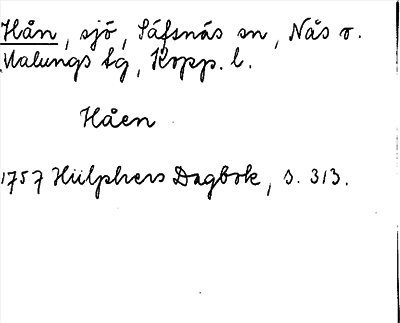 Hån, sjö, Säfsnäs sn, Nås o.
Malungs tg, Kopp. l.
Håen
1757 Hülphers Dagbok, s. 313.